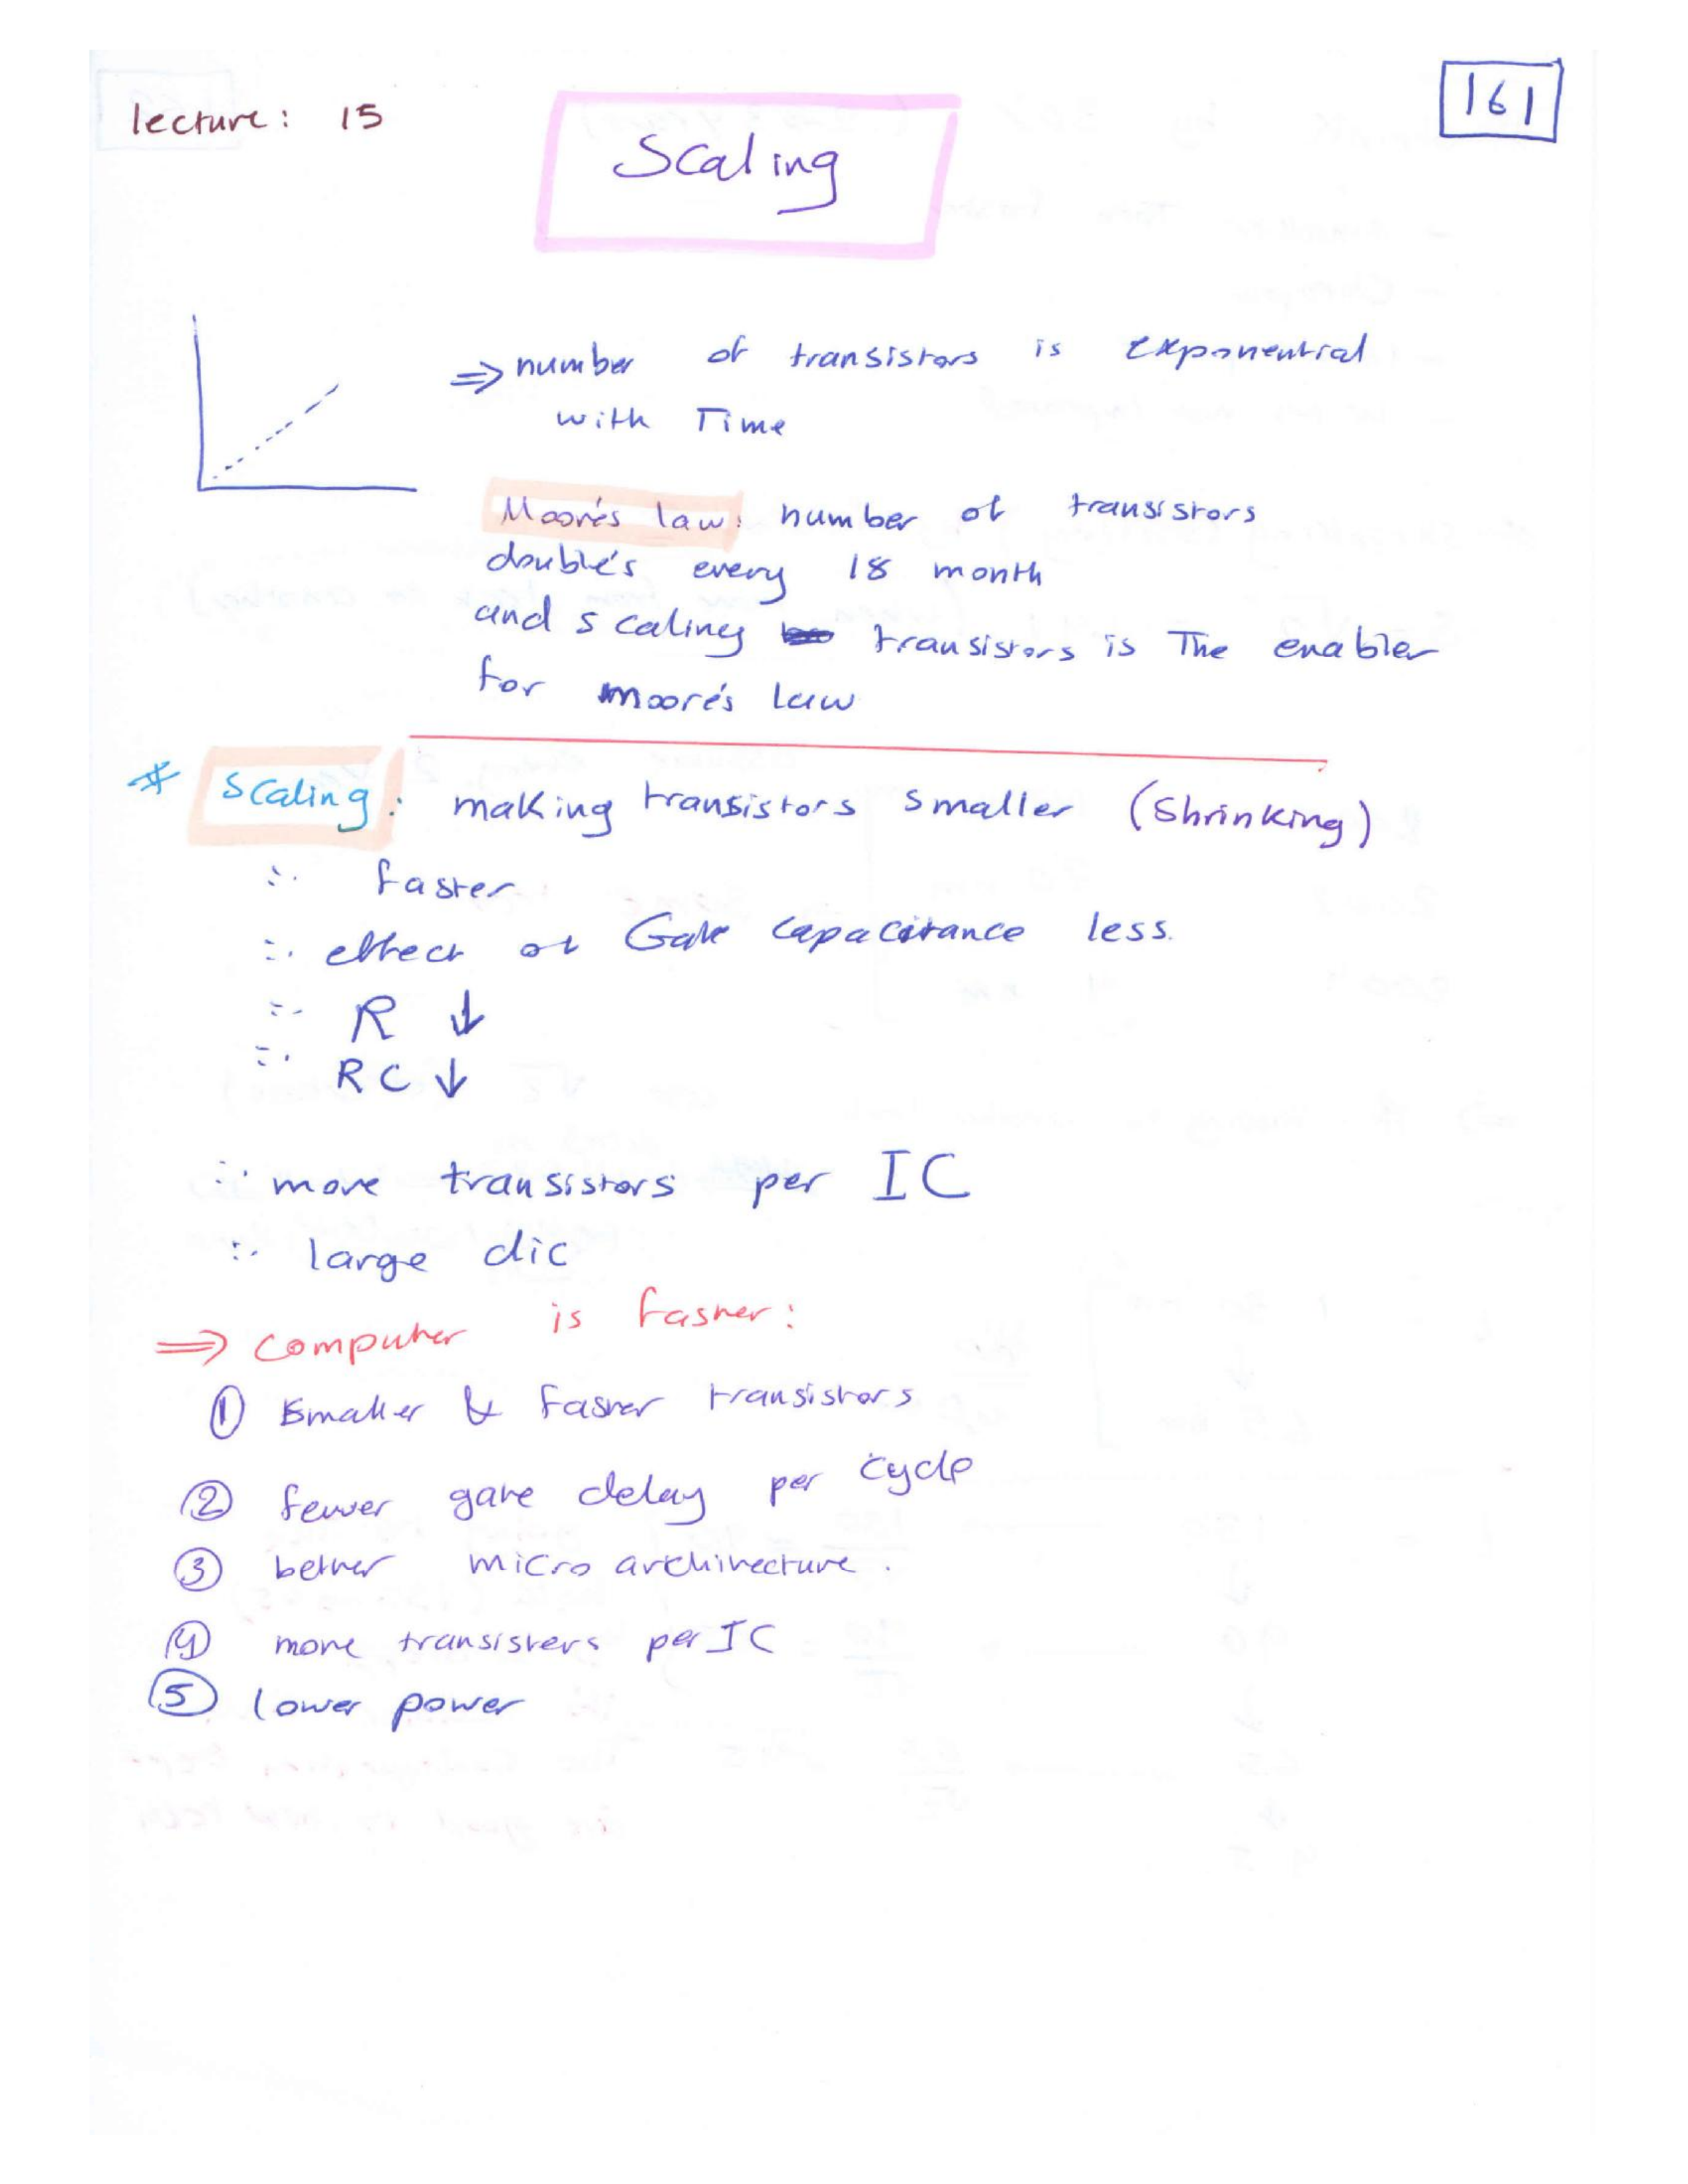 lecture: 15
161
Scaling
⇒ number of transistors is exponential
with Time
Moore's law: number of transistors
double's every 18 month
and scaling transistors is The enabler
for moore's law
* Scaling: making transistors smaller (Shrinking)
∴ faster
∴ effect of Gate capacitance less.
∴ R ↓
∴ RC ↓
∴ more transistors per IC
∴ large dic
⇒ computer is faster:
① Smaller & faster transistors
② fewer gate delay per cycle
③ better micro architecture.
④ more transisters per IC
⑤ lower power